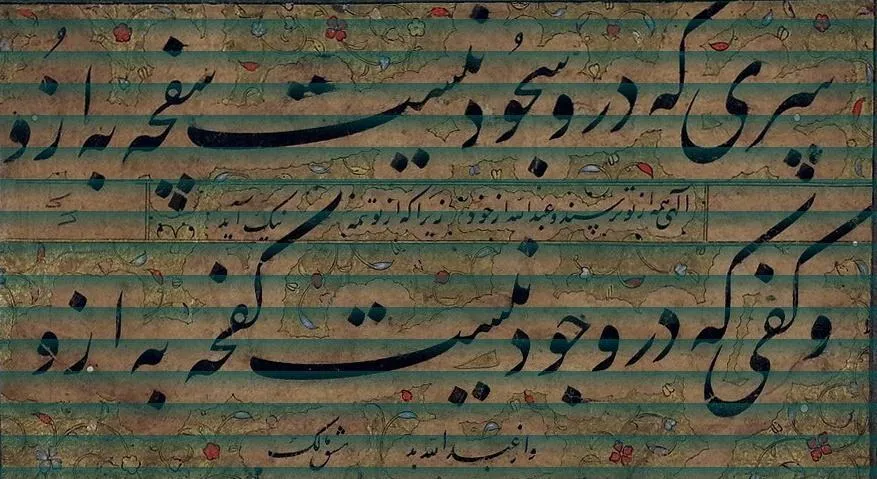 سری که درو سجود نیست سفچه به ازو
الهی همه از تو ترسند و عبدالله از خود زیرا که از تو همه نیک آید
و کفی که درو جود نیست کفچه به ازو
و از عبدالله بد